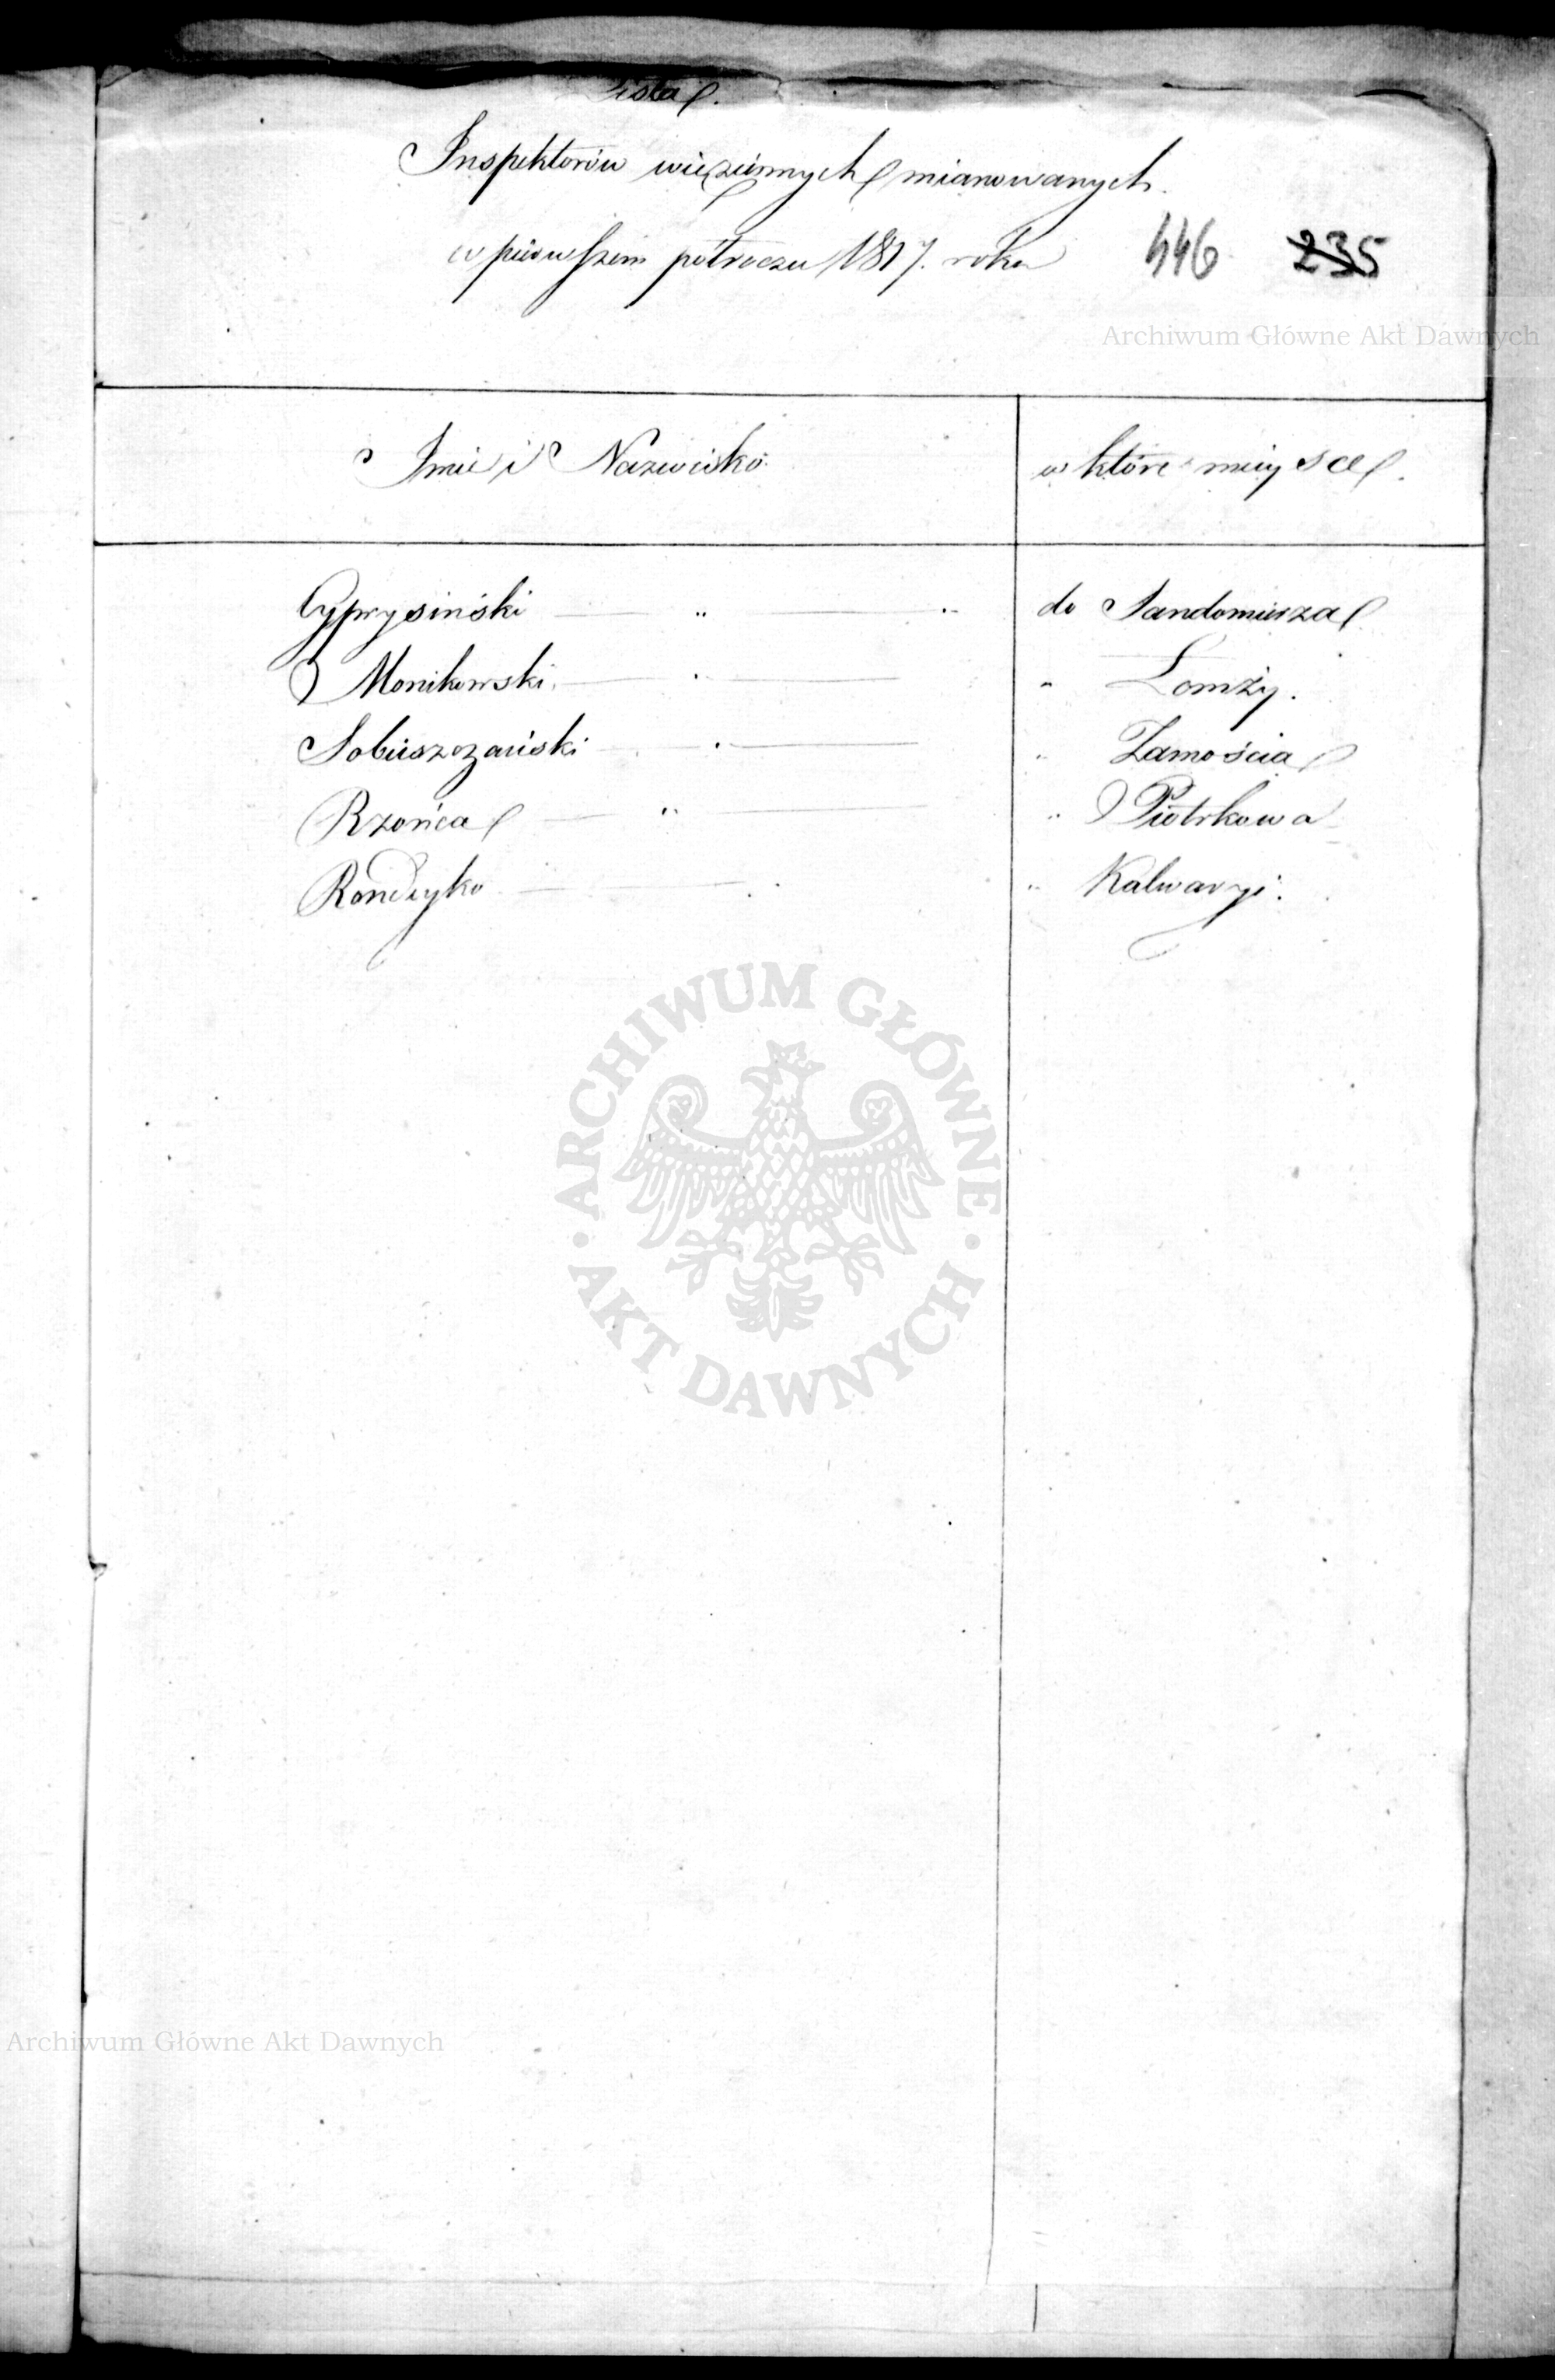 Lista.
Inspektorów więziennych mianowanych
w pierwszem półroczu 1817. roku
446 235
Archiwum Główne Akt Dawnych
Imie i Nazwisko
w które mieysce.
Cyprysiński — „ — „ do Sandomierza
Monikowski. — „ Łomży.
Sobieszczański — „ Zamościa
Rzońca — „ — „ Piotrkowa
— „ Kalwaryi.
ARCHIWUM GŁÓWNE
AKT DAWNYCH
Archiwum Główne Akt Dawnych